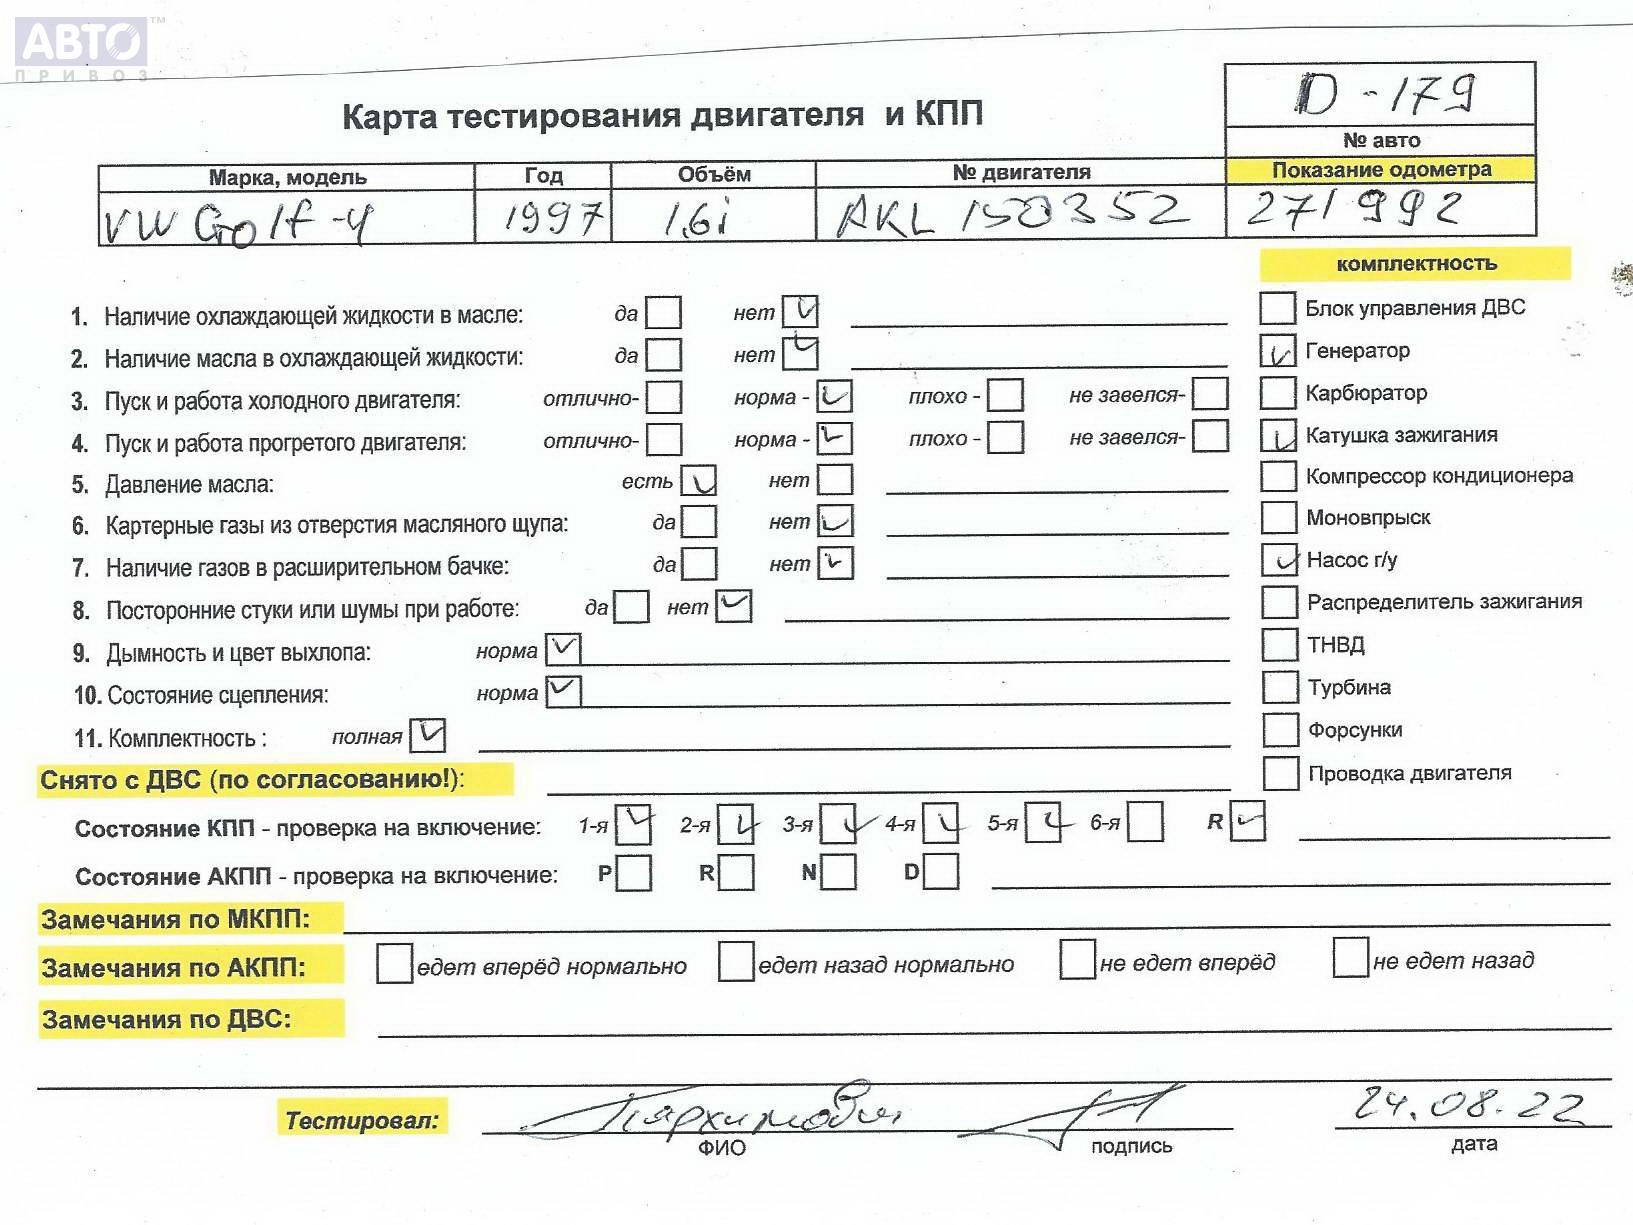 АВТО™
ПРИВОЗ
D-179
Карта тестирования двигателя и КПП
№ авто
Марка, модель Год Объём № двигателя Показание одометра
VW Golf-4 1997 1.6i AKL 150352 271992
комплектность
1. Наличие охлаждающей жидкости в масле: да нет
Блок управления ДВС
2. Наличие масла в охлаждающей жидкости: да нет
Генератор
3. Пуск и работа холодного двигателя: отлично- норма - плохо - не завелся-
Карбюратор
4. Пуск и работа прогретого двигателя: отлично- норма - плохо - не завелся-
Катушка зажигания
5. Давление масла: есть нет
Компрессор кондиционера
6. Картерные газы из отверстия масляного щупа: да нет
Моновпрыск
7. Наличие газов в расширительном бачке: да нет
Насос г/у
8. Посторонние стуки или шумы при работе: да нет
Распределитель зажигания
9. Дымность и цвет выхлопа: норма
ТНВД
10. Состояние сцепления: норма
Турбина
11. Комплектность : полная
Форсунки
Снято с ДВС (по согласованию!):
Проводка двигателя
Состояние КПП - проверка на включение: 1-я 2-я 3-я 4-я 5-я 6-я R
Состояние АКПП - проверка на включение: P R N D
Замечания по МКПП:
Замечания по АКПП: едет вперёд нормально едет назад нормально не едет вперёд не едет назад
Замечания по ДВС:
Тестировал: 24.08.22
ФИО подпись дата